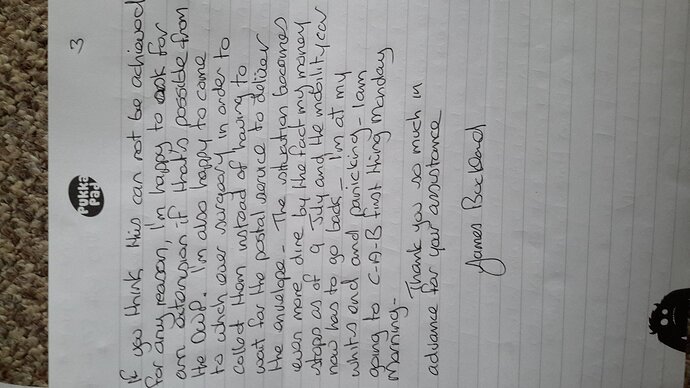 3
Pukka
Pad
If you think this can not be achieved
for any reason, I'm happy to ask for
an extension if that's possible from
the DWP. I'm also happy to come
to which ever surgery in order to
collect them instead of having to
wait for the postal service to deliver
the envelope - The situation becomes
even more dire by the fact my money
stops as of 9 July and the mobility car
now has to go back - I'm at my
whits end and panicking - I am
going to C-A-B first thing Monday
morning -
Thank you so much in
advance for your assistance
James